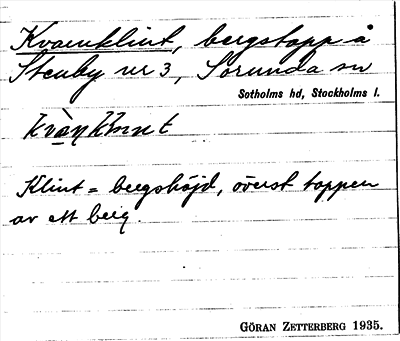 Kvarnklint, bergstopp å
Stenby nr 3, Sorunda sn
Sotholms hd, Stockholms l.
Klint = bergshöjd, överst toppen
av ett berg.
GÖRAN ZETTERBERG 1935.